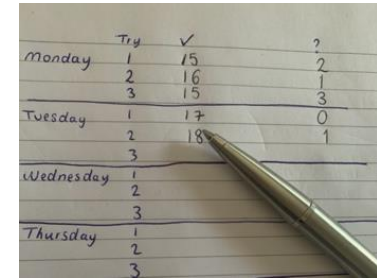 Try ✓ ?
Monday 1 15 2
2 16 1
3 15 3
Tuesday 1 17 0
2 18 1
3
Wednesday 1
2
3
Thursday 1
2
3